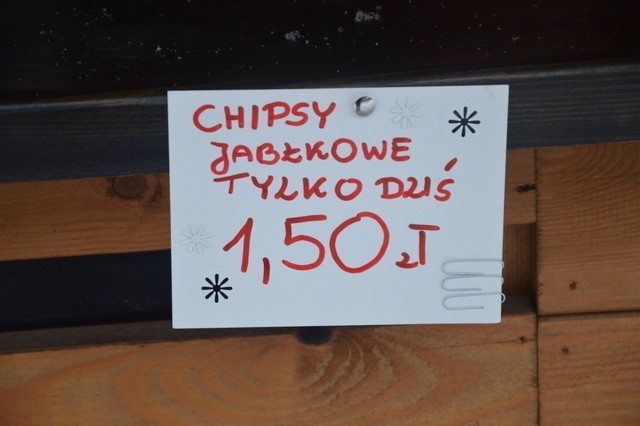 CHIPSY
JABŁKOWE
TYLKO DZIŚ
1,50 zŁ